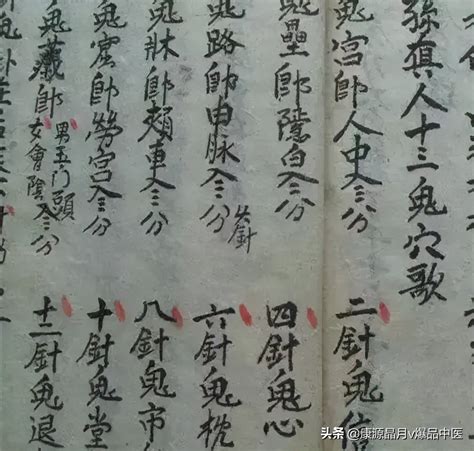 孫真人十三鬼穴歌
鬼宮即人中入三分 二針鬼信
鬼壘即隱白入三分 四針鬼心
鬼路即申脉入三分 火針 六針鬼枕
鬼牀即頰車入三分 八針鬼市
鬼窟即勞宮入三分 十針鬼堂
鬼藏即 男玉门頭 女會陰入三分 十二針鬼退
头条 @康源晶月v爆品中医